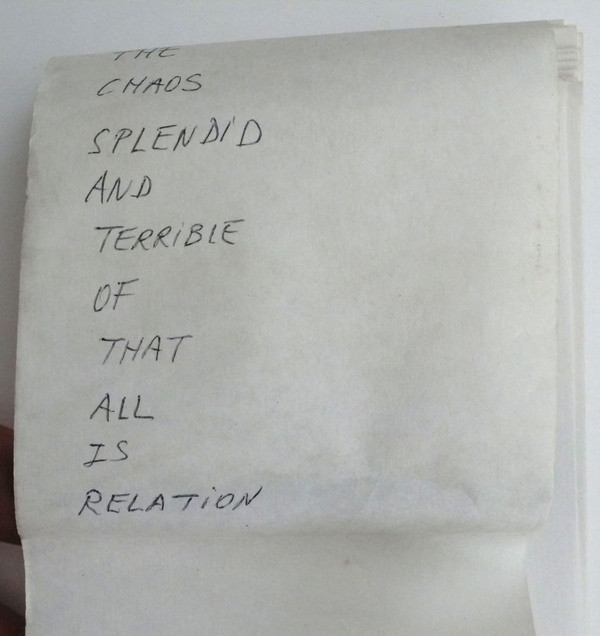 THE
CHAOS
SPLENDID
AND
TERRIBLE
OF
THAT
ALL
IS
RELATION